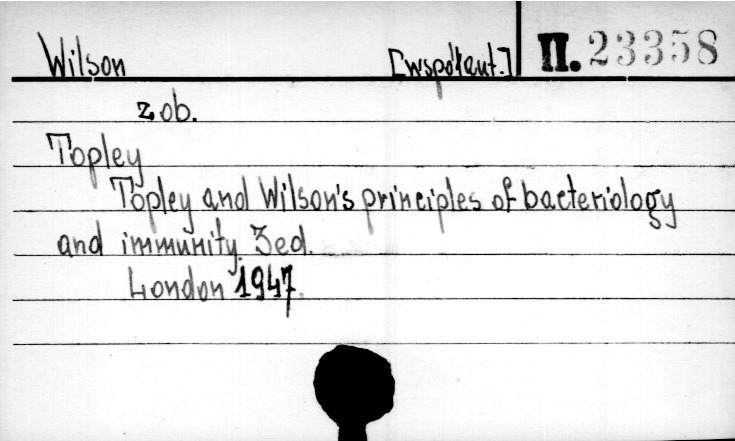 Wilson [współaut.] II. 23358
zob.
Topley
Topley and Wilson's principles of bacteriology
and immunity. 3ed.
London 1947.